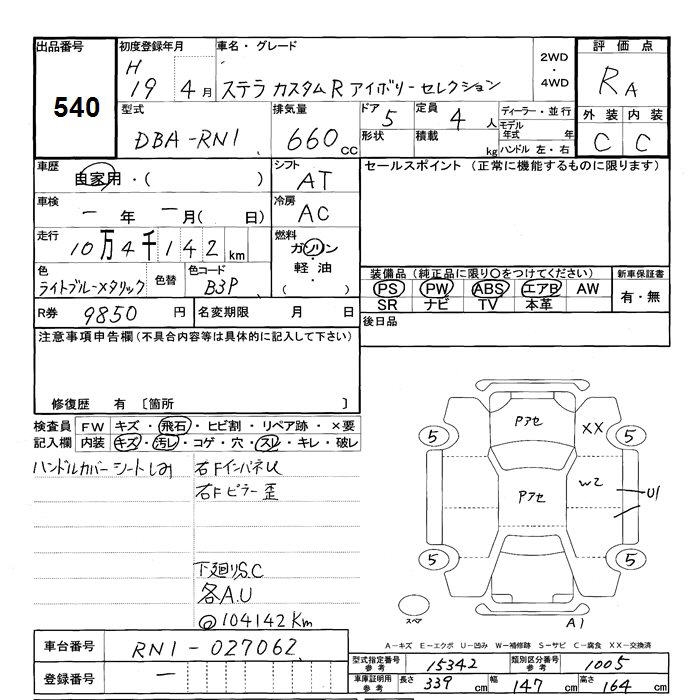 出品番号
540
初度登録年月
H
19 4月
車名・グレード
ステラ カスタムR アイボリーセレクション
2WD
・
4WD
評価点
RA
外装 内装
C C
型式
DBA-RN1
排気量
660cc
ドア 5
形状
定員 4人
積載 kg
ディーラー・並行
モデル年式 年
ハンドル 左・右
車歴
自家用・( )
シフト
AT
セールスポイント (正常に機能するものに限ります)
車検
一年 一月( 日)
冷房
AC
走行
10万4千142km
燃料
ガソリン
・
軽油
・
( )
色
ライトブルーメタリック
色替
色コード
B3P
装備品(純正品に限り○をつけてください)
PS PW ABS エアB AW
SR ナビ TV 本革
新車保証書
有・無
R券 9850円
名変期限 月 日
後日品
注意事項申告欄(不具合内容等は具体的に記入して下さい)
修復歴 有 〔箇所 〕
検査員 FW キズ・飛石・ヒビ割・リペア跡・×要
記入欄 内装 キズ・汚レ・コゲ・穴・スレ・キレ・破レ
ハンドルカバー シートしみ
右Fインパネし
右Fピラー歪
下廻りS.C
各A.U
@104142Km
Pアセ
XX
5
5
Pアセ
W2
U1
5
5
スペア
A1
A-キズ E-エクボ U-凹み W-補修跡 S-サビ C-腐食 XX-交換済
車台番号 RN1-027062
登録番号 一
型式指定番号
参考
15342
類別区分番号
参考
1005
車庫証明用
参考
長さ 339cm 幅 147cm 高さ 164cm